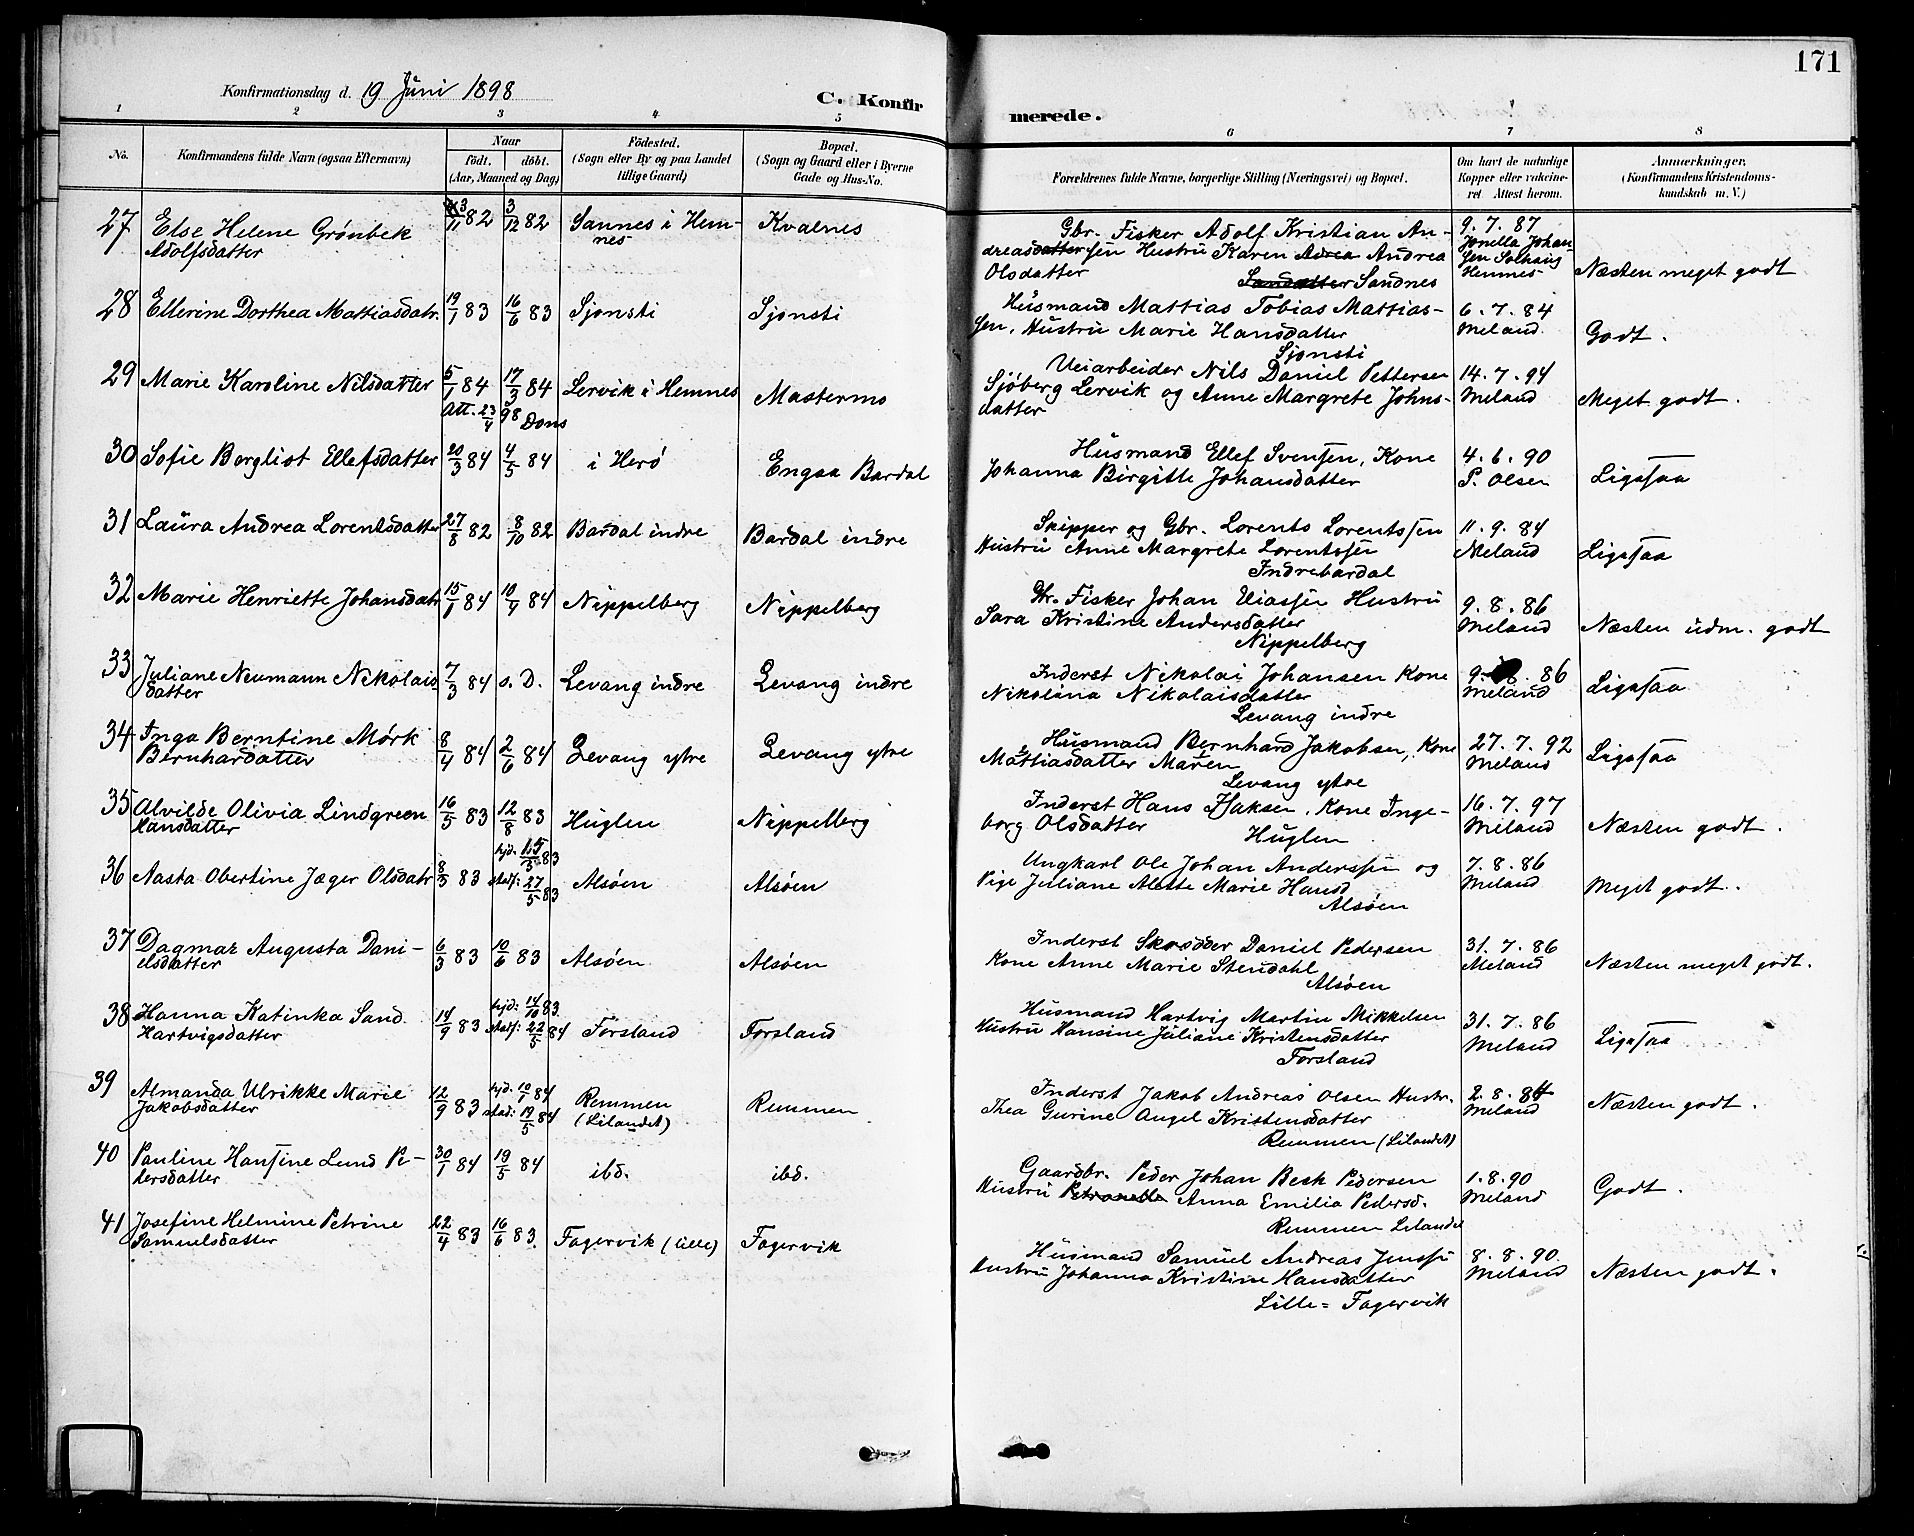 171
Konfirmationsdag d. 19 Juni 1898
C. Konfir
merede.
1 2 3 4 5 6 7 8
No. Konfirmandens fulde Navn (ogsaa Efternavn) Naar födt. döbt. (Aar, Maaned og Dag) Födested. (Sogn eller By og paa Landet tillige Gaard) Bopæl. (Sogn og Gaard eller i Byerne Gade og Hus-No.
Forældrenes fulde Navne, borgerlige Stilling (Næringsvei) og Bopæl. Om havt de naturlige Kopper eller vakcineret. Attest herom. Anmærkninger. (Konfirmandens Kristendomskundskab m. V.)
27 Else Helene Grönbek 3/11 82 3/12 82 Sannes i Hem- Kvalnes
Adolfsdatter nes
Gbr. Fisker Adolf Kristian An- 9.7.87
dreasdatter sen Hustru Karen Adrea Andrea Jonella Johan
Olsdatter Sandnes sen Solhaug Hemnes Næsten meget godt
28 Ellerine Dorthea Mattiasdatr. 19/1 83 16/6 83 Sjonsti Sjonsti
Husmand Mattias Tobias Mattias- 6.7.84
sen, Hustru Marie Hansdatter Meland Godt.
Sjonsti
29 Marie Karoline Nilsdatter 5/1 84 17/3 84 Lervik i Hemnes Mastermo
Att. 23/4 98 Dons
Veiarbeider Nils Daniel Pettersen 14.7.94
Sjöberg Lervik og Anne Margrete Johns- Meland Meget godt.
datter
30 Sofie Bergliot Ellefsdatter 20/3 84 4/5 84 i Herö Engaa Bardal
Husmand Ellef Svensen, Kone 4.6.90
Johanna Birgitte Johansdatter P. Olsen Ligesaa
31 Laura Andrea Lorentsdatter 27/8 82 8/10 82 Bardal indre Bardal indre
Skipper og Gbr. Lorents Lorentssen 11.9.84
Hustru Anne Margrete Lorentssen Meland Ligesaa
Indrebardal
32 Marie Henriette Johansdatr 15/1 84 10/4 84 Nippelberg Nippelberg
Gbr. Fisker Johan Eliassen Hustru 9.8.86
Sara Kristine Andersdatter Meland Næsten udm. godt
Nippelberg
33 Juliane Neumann Nikolais 7/3 84 s. D. Levang indre Levang indre
datter
Inderst Nikolai Johansen Kone 9. 8.86
Nikolina Nikolaisdatter Meland Ligesaa
Levang indre
34 Inga Berntine Mörk 8/4 84 2/6 84 Levang ytre Levang ytre
Bernhardatter
Husmand Bernhard Jakobsen, Kone 27.7.92
Mattiasdatter Maren Meland Ligesaa
Levang ytre
35 Alvilde Olivia Lindgreen 16/5 83 12/8 83 Huglen Nippelberg
Hansdatter
Inderst Hans Isaksen, Kone Inge- 16.7.97
borg Olsdatter Meland Næsten godt.
Huglen
36 Nasta Obertine Jæger Olsdatr 8/3 83 hjd. 15/5 83 Alsöen Alsöen
stadf: 27/5 83
Ungkarl Ole Johan Anderssen og 7.8.86
Pige Juliane Alette Marie Hansd Meland Meget godt.
Alsöen
37 Dagmar Augusta Dani- 6/3 83 10/6 83 Alsöen Alsöen
elsdatter
Inderst Daniel Pedersen 31.7.86
Kone Anne Marie Stendahl Meland Næsten meget godt.
Alsöen
38 Hanna Katinka Sand 14/9 83 hjd: 14/10 83 Forsland Forsland
Hartvigsdatter stadf: 22/5 84
Husmand Hartvig Martin Mikkelsen 31.7.86
Hustru Hansine Juliane Kristensdatter Meland Ligesaa
Forsland
39 Almanda Ulrikke Marie 12/9 83 hjd. 10/1 84 Remmen Remmen
Jakobsdatter stad: 19/5 84 (Lilandet)
Inderst Jakob Andreas Olsen Hustr. 2.8.84
Thea Gurine Angel Kristensdatter Meland Næsten godt.
Remmen (Lilandet)
40 Pauline Hansine Lund Pe- 30/1 84 19/5 84 ibd. ibd.
tersdatter
Gaardbr. Peder Johan Besk Pedersen 1.8.90
Hustru Petronelle Anna Emilia Pedersd. Meland Godt.
Remmen Lilandet
41 Josefine Helmine Petrine 22/4 83 16/6 83 Fagervik (Lille) Fagervik
Samuelsdatter
Husmand Samuel Andreas Jenssen 8.8.90
Hustru Johanna Kristine Hansdatter Meland Næsten godt.
Lille=Fagervik